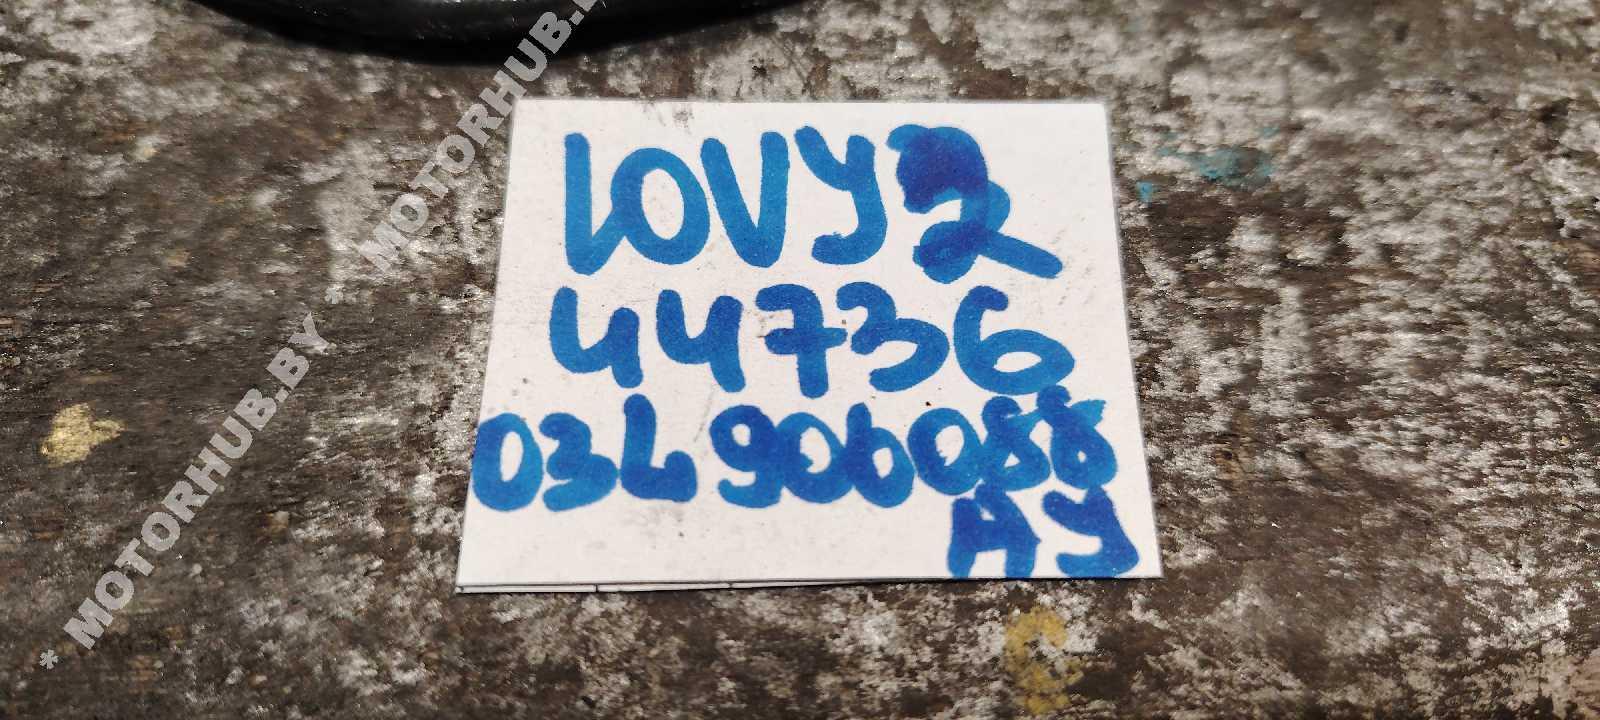 LOVY2
44736
03L 906 088
AY
* MOTORHUB.BY * MOTORHUB.